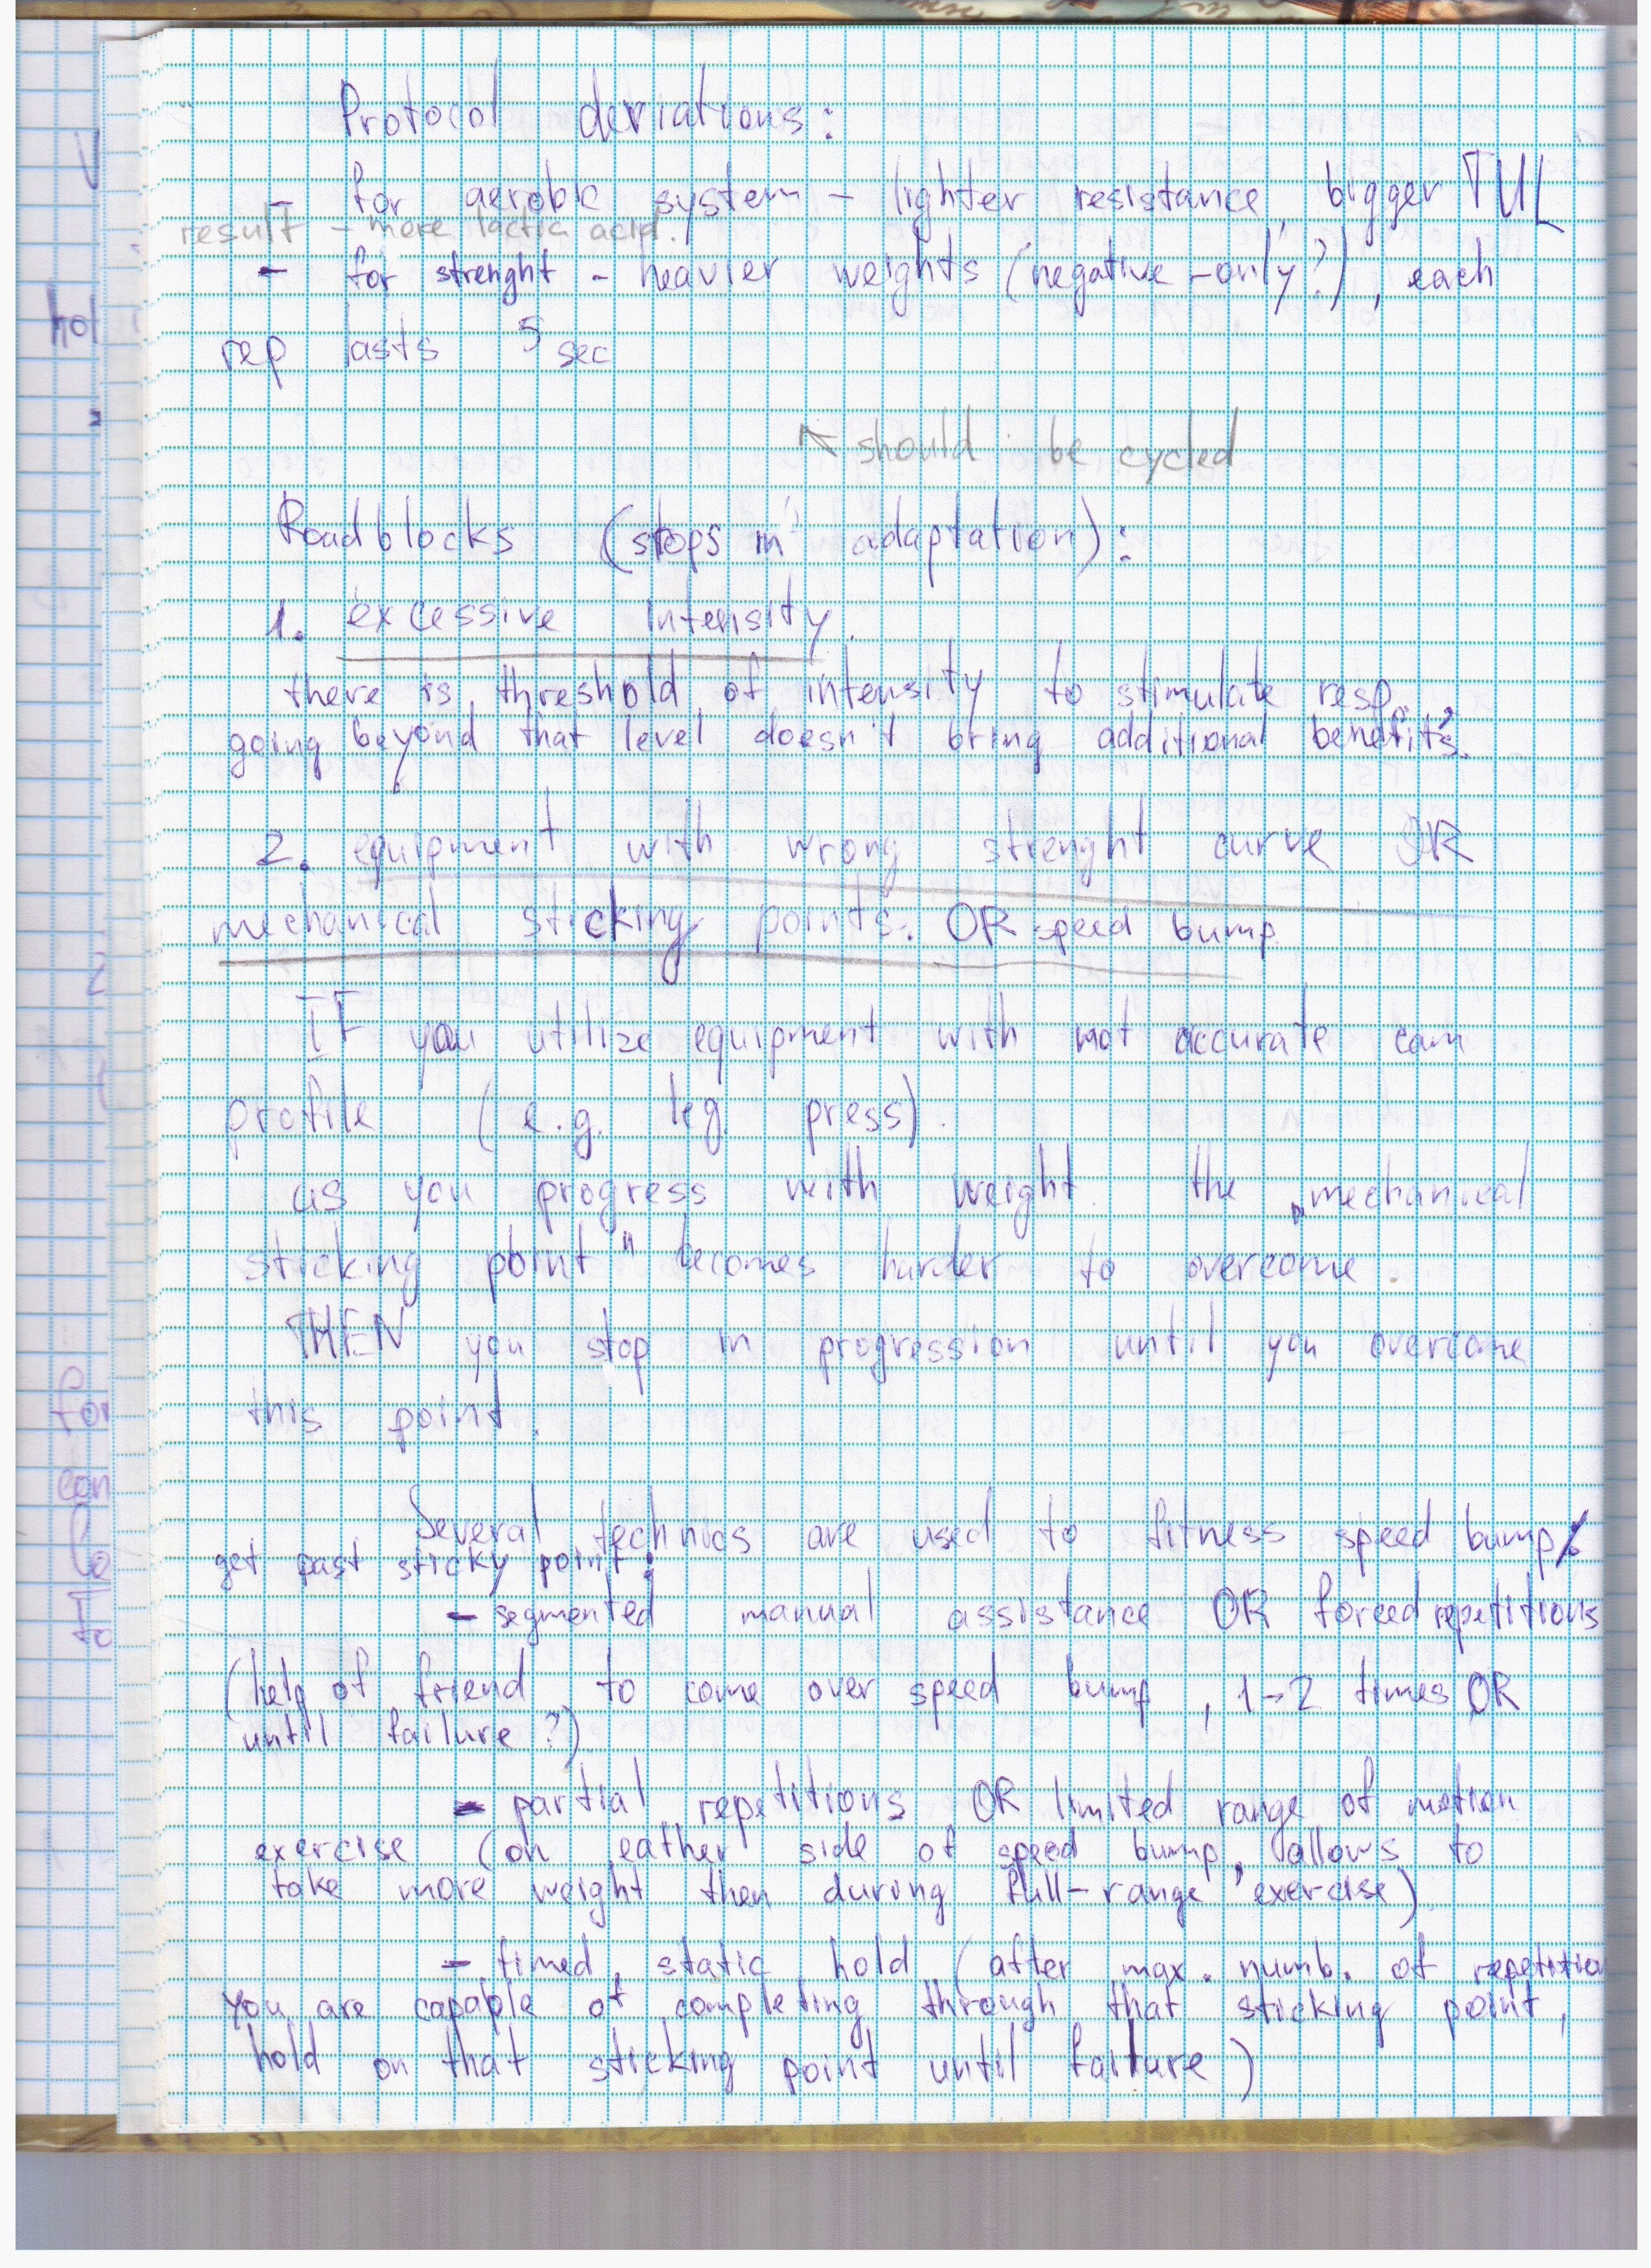 Protocol deviations:
- for aerobic system - lighter resistance, bigger TUL
result - more lactic acid.
- for strenght - heavier weights (negative-only?), each
rep lasts 5 sec
↖ should be cycled
Roadblocks (stops in adaptation):
1. excessive intensity.
there is threshold of intensity to stimulate resp,
going beyond that level doesn't bring additional benefits.
2. equipment with wrong strenght curve OR
mechanical sticking points. OR speed bump
IF you utilize equipment with not accurate cam
profile (e.g. leg press).
as you progress with weight the „mechanical
sticking point" becomes harder to overcome.
THEN you stop in progression until you overcome
this point.
Several technics are used to fitness speed bump/
get past sticky point:
- segmented manual assistance OR forced repetitions
(help of friend to come over speed bump, 1-2 times OR
until failure?)
- partial repetitions OR limited range of motion
exercise (on eather side of speed bump, allows to
take more weight then during full-range exercise)
- timed static hold (after max. numb. of repetitio
you are capable of completing through that sticking point,
hold on that sticking point until failure)
hol
for
con
To